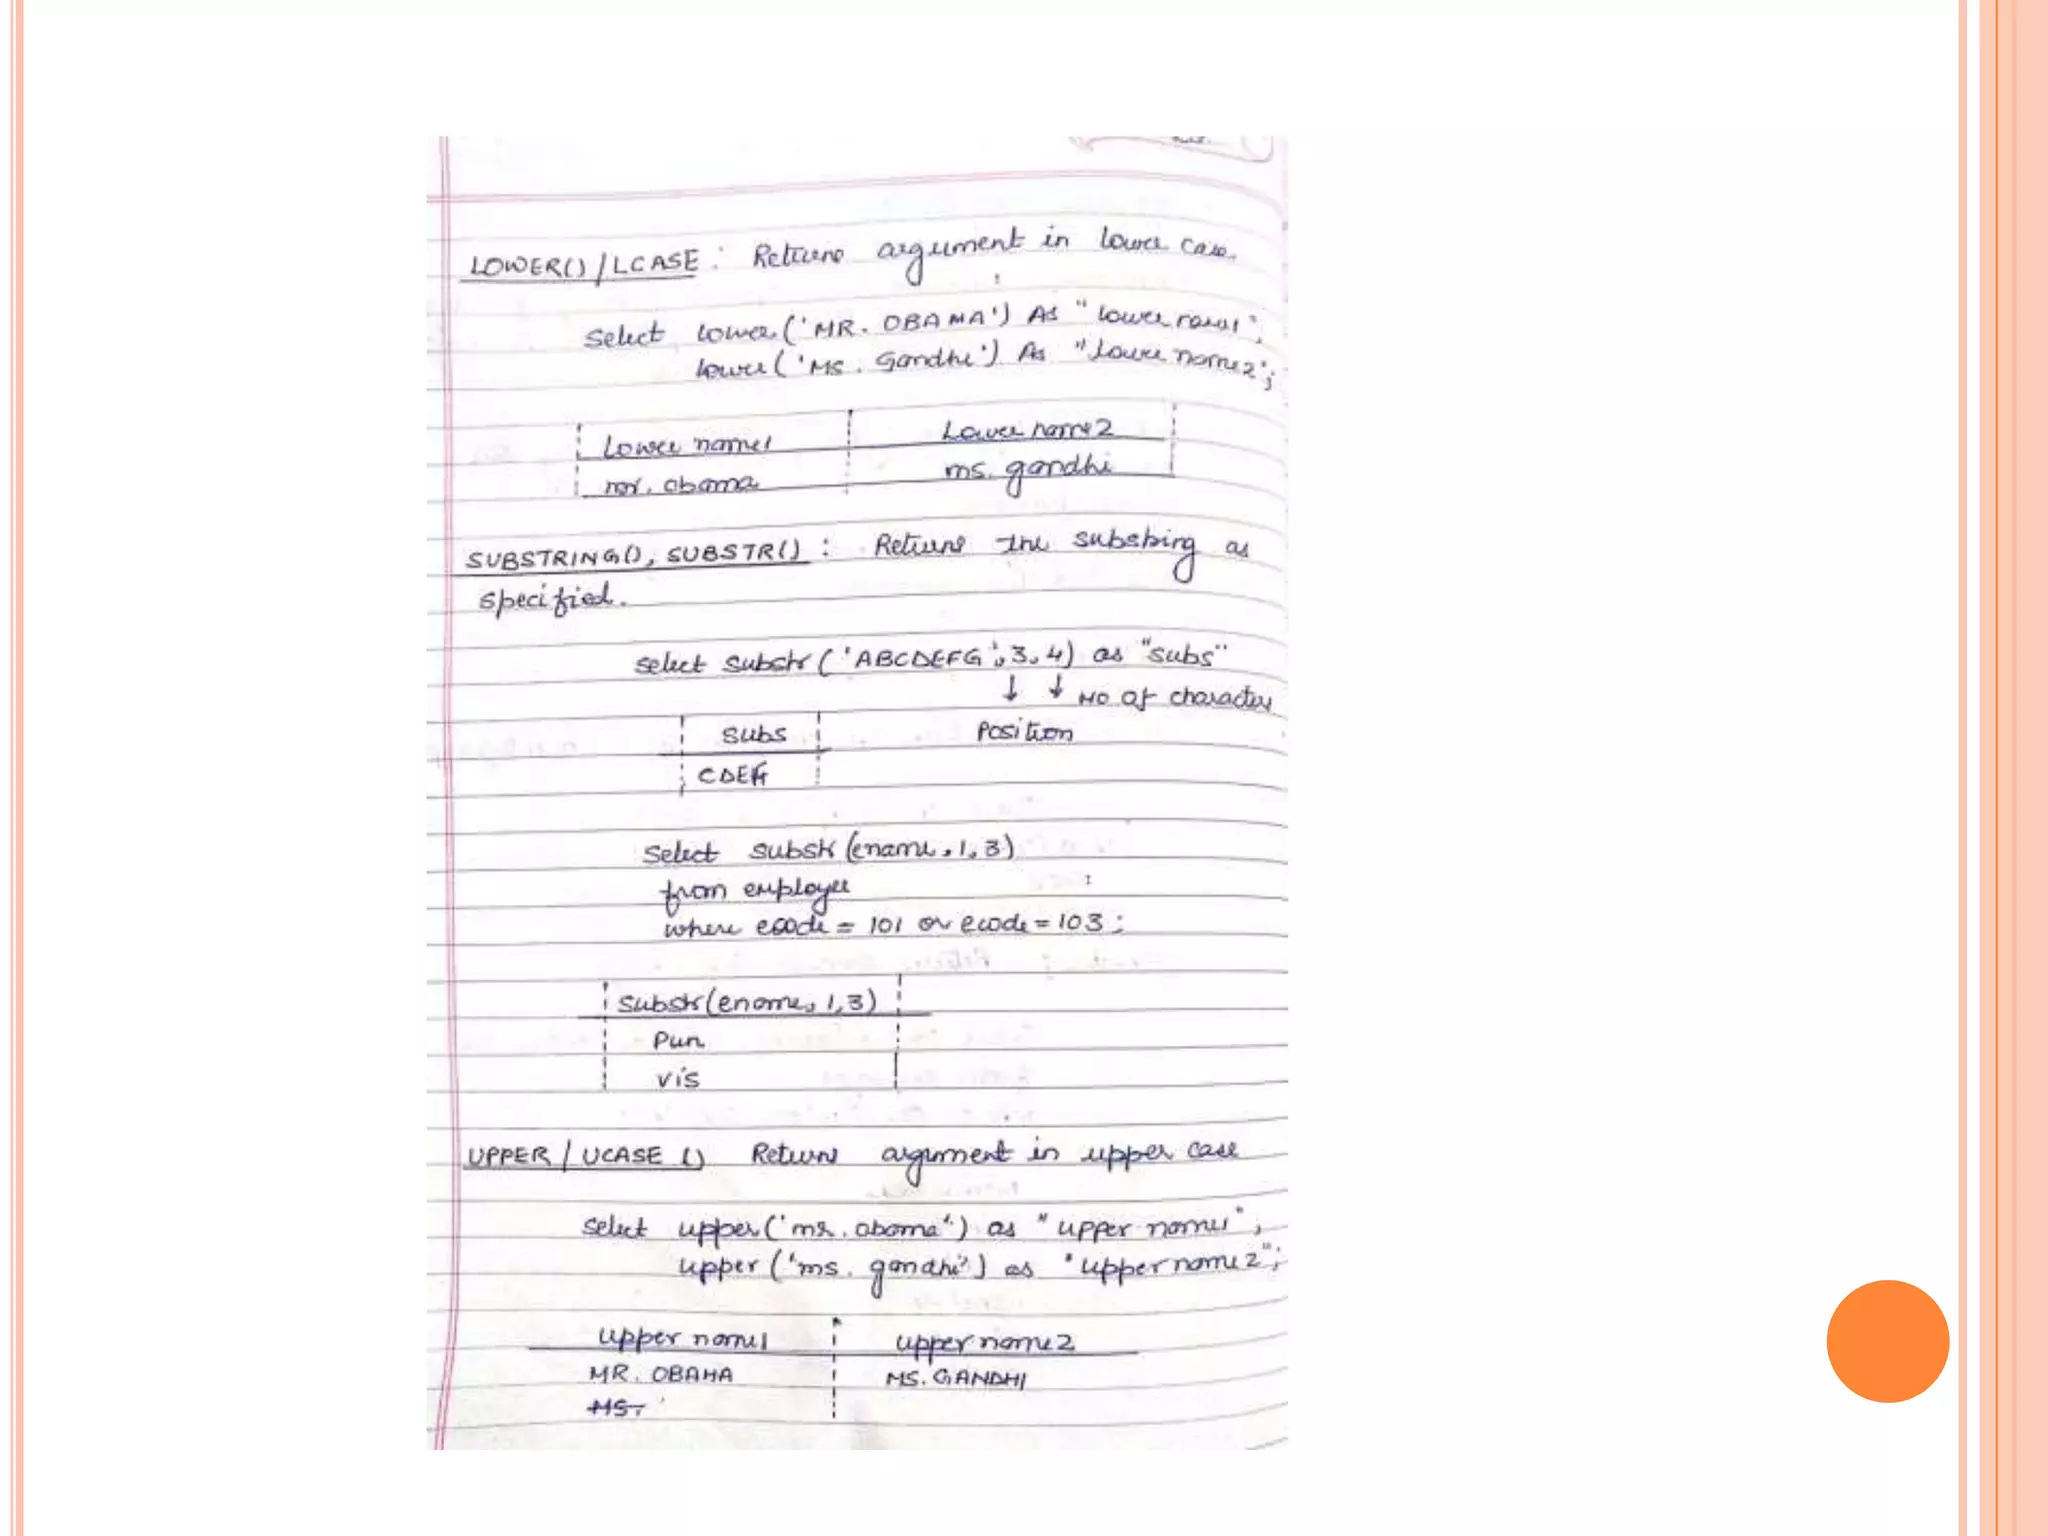 LOWER() / LCASE : Returns argument in lower case.
Select lower('MR. OBAMA') As "lower name1",
lower('Ms. Gandhi') As "lower name2";
Lower name1 Lower name2
mr. obama ms. gandhi
SUBSTRING(), SUBSTR() : Returns the substring as
specified.
select substr('ABCDEFG',3,4) as "subs"
↓ ↓ No of character
subs Position
CDEF
Select substr(ename,1,3)
from employee
where ecode = 101 or ecode = 103;
substr(ename,1,3)
Pun
vis
UPPER / UCASE () Returns argument in upper case
select upper('mr. obama') as "upper name1",
upper('ms. gandhi') as "upper name2";
upper name1 upper name2
MR. OBAMA MS. GANDHI
MS.